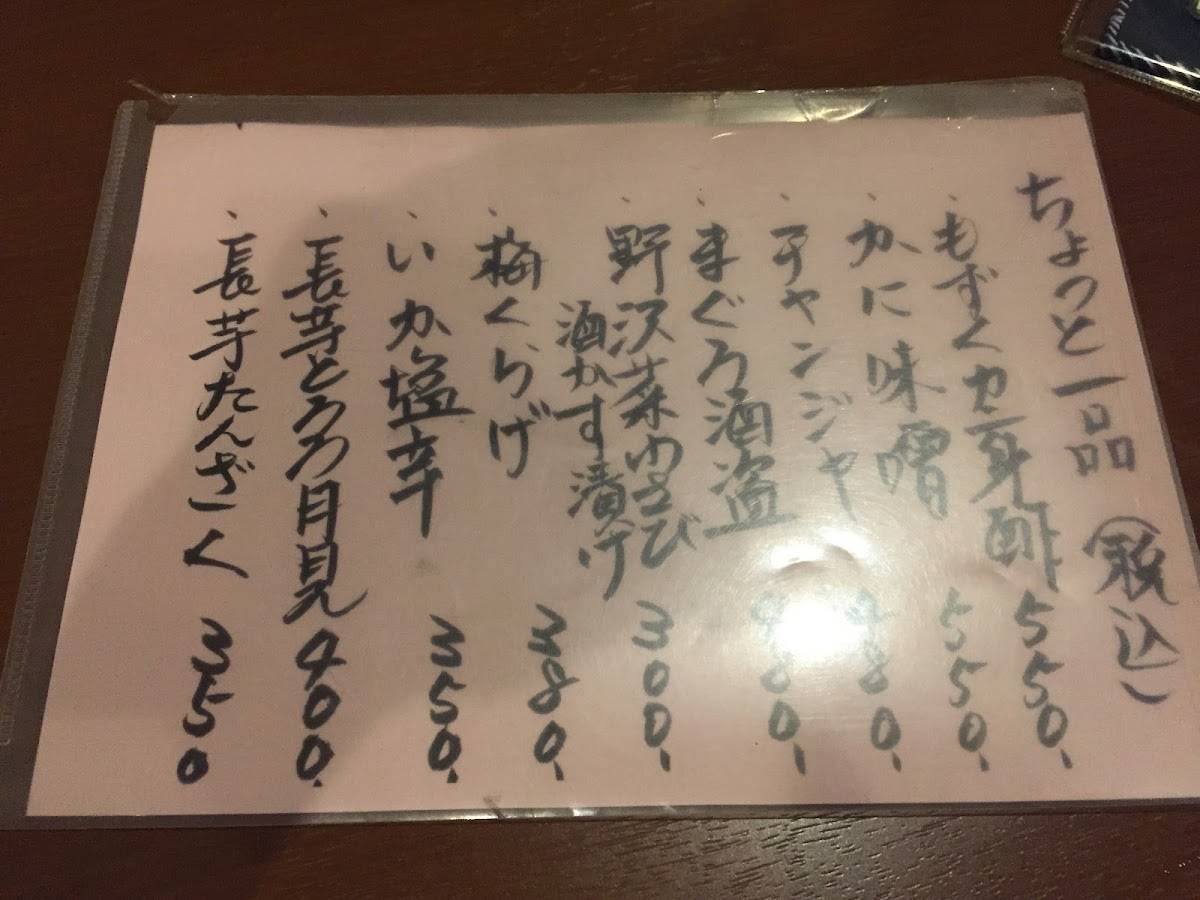 ちょっと一品(税込)
、もずくカニ身酢 550、
、かに味噌 550、
、チャンジャ 480、
、まぐろ酒盗 480、
、野沢菜わさび
酒かす漬け 300、
、梅くらげ 380、
、いか塩辛 350、
、長芋とろろ月見 400、
、長芋たんざく 350